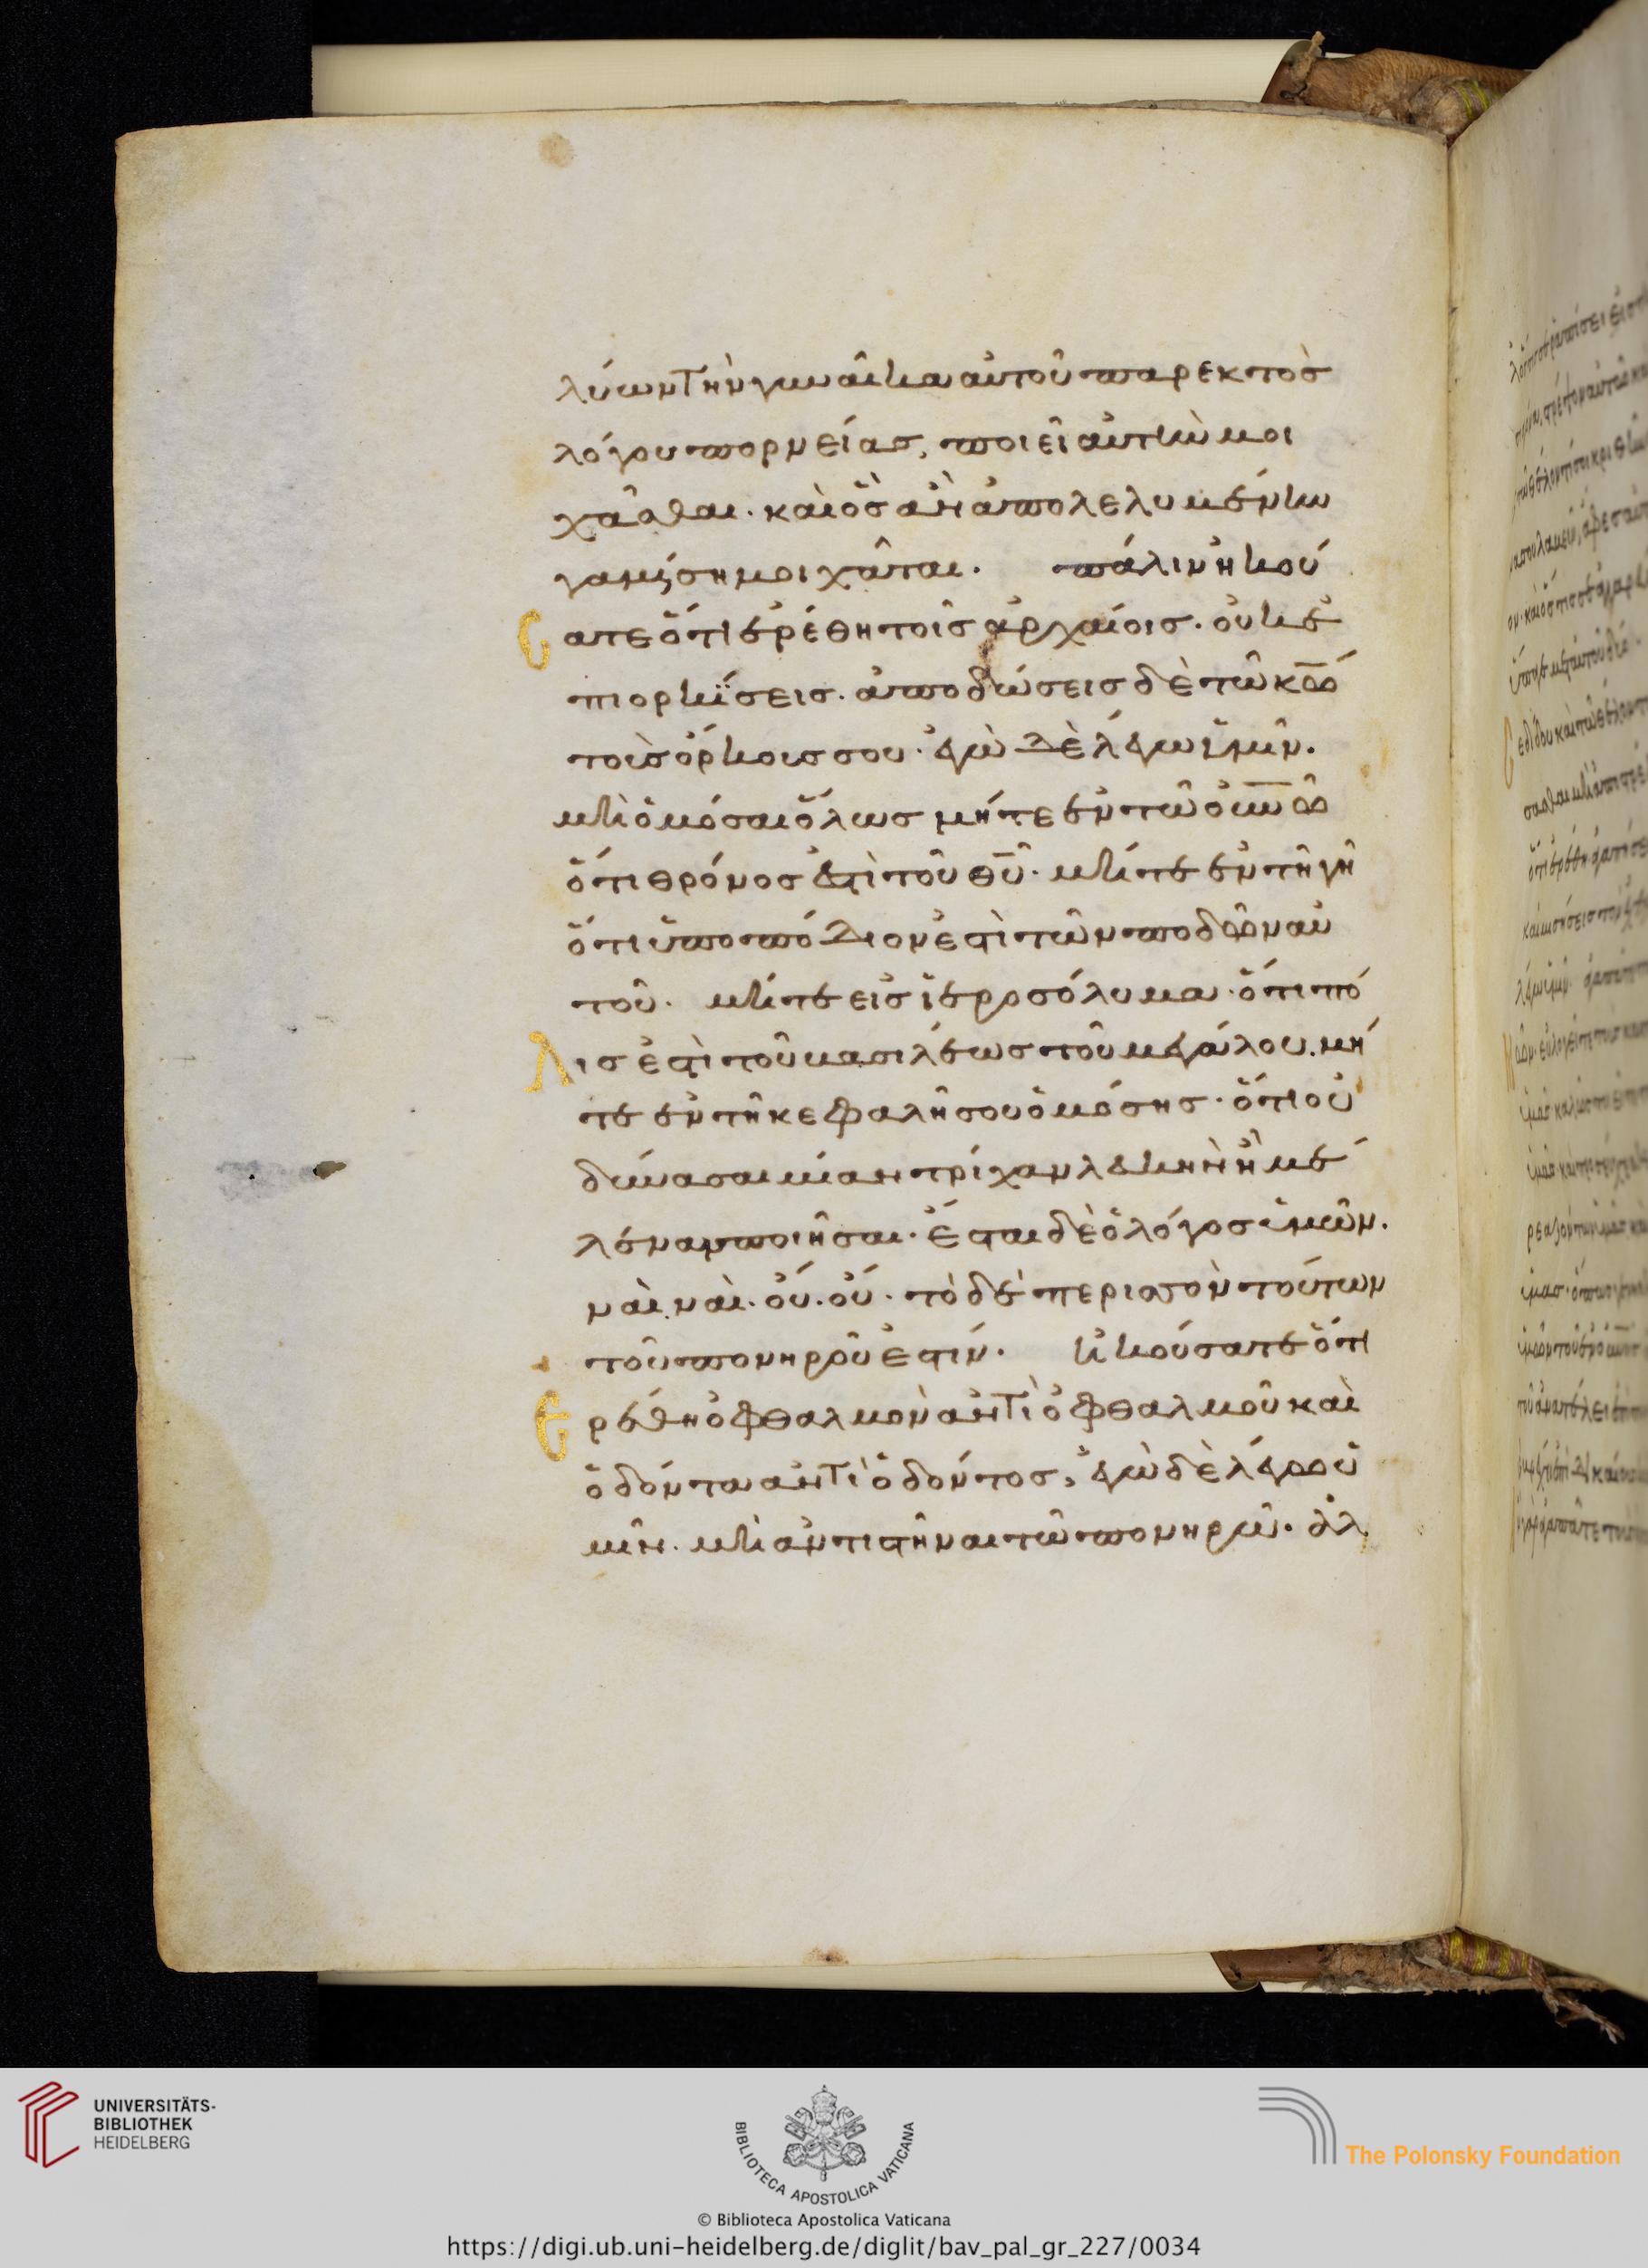 λύων τὴν γυναῖκα αὐτοῦ παρεκτὸς
λόγου πορνείας, ποιεῖ αὐτὴν μοι
χᾶσθαι· καὶ ὃς ἂν ἀπολελυμένην
γαμήση μοιχᾶται. πάλιν ἠκού
Cατε ὅτι ἐρέθη τοῖς ἀρχαίοις. οὐκ ἐ
πιορκήσεις. ἀποδώσεις δὲ τῶ κω
τοὺς ὅρκους σου· ἐγὼ δὲ λέγω ὑμῖν.
μὴ ὀμόσαι ὅλως μήτε ἐν τῶ ουνω
ὅτι θρόνος ἐστὶ τοῦ θυ. μήτε ἐν τῆ γῆ
ὅτι ὑποπόδιον ἐστὶ τῶν ποδῶν αὐ
τοῦ. μήτε εἰς ἱεροσόλυμα. ὅτι πό
Λις ἐστὶ τοῦ μεγάλου βασιλέως. μή
τε ἐν τῆ κεφαλῆ σου ὀμόσης. ὅτι οὐ
δύνασαι μίαν τρίχαν λευκὴν ἢ μέ
λέναν ποιῆσαι. ἔσται δὲ ὁ λόγος ὑμῶν.
ναὶ. ναὶ. οὔ. οὔ. τὸ δὲ περισσὸν τούτων
τοῦ πονηροῦ ἐστίν. ἠκούσατε ὅτι
Ερέθη ὀφθαλμὸν ἀντὶ ὀφθαλμοῦ καὶ
ὀδόντα ἀντὶ ὀδόντος, ἐγὼ δὲ λέγω ὑ
μῖν. μὴ ἀντιστῆναι τῶ πονηρῶ. ἀλ
UNIVERSITÄTS-
BIBLIOTHEK
HEIDELBERG
BIBLIOTECA APOSTOLICA VATICANA
The Polonsky Foundation
© Biblioteca Apostolica Vaticana
https://digi.ub.uni-heidelberg.de/diglit/bav_pal_gr_227/0034